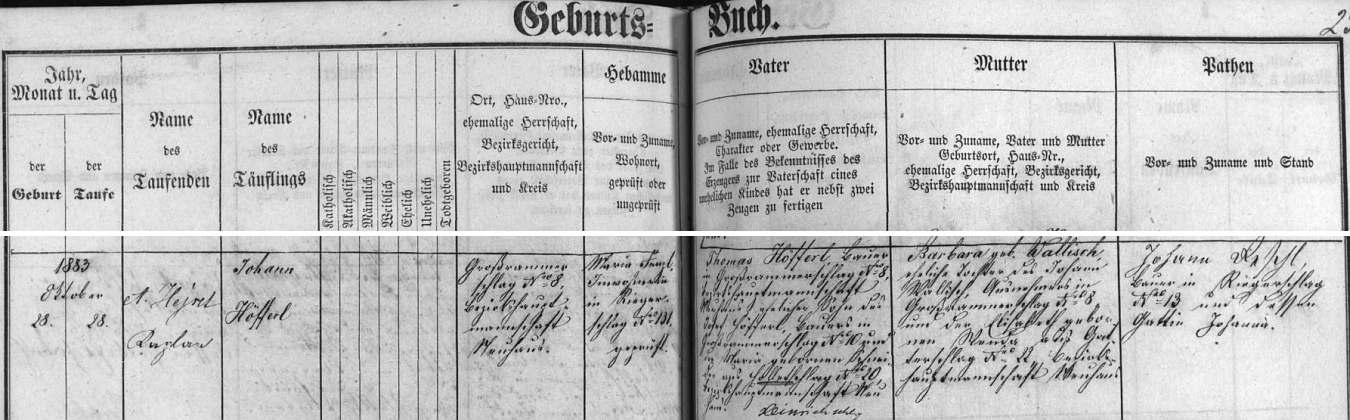 Geburts=
Buch.
Jahr,
Monat u. Tag
der
Geburt
der
Taufe
Name
des
Taufenden
Name
des
Täuflings
Katholisch
Akatholisch
Männlich
Weiblich
Ehelich
Unehelich
Todtgeboren
Ort, Haus-Nro.,
ehemalige Herrschaft,
Bezirksgericht,
Bezirkshauptmannschaft
und Kreis
Hebamme
Vor- und Zuname,
Wohnort,
geprüft oder
ungeprüft
Vater
Vor- und Zuname, ehemalige Herrschaft,
Charakter oder Gewerbe.
Im Falle des Bekenntnisses des
Erzeugers zur Vaterschaft eines
unehelichen Kindes hat er nebst zwei
Zeugen zu fertigen
Mutter
Vor- und Zuname, Vater und Mutter
Geburtsort, Haus-Nr.,
ehemalige Herrschaft, Bezirksgericht,
Bezirkshauptmannschaft und Kreis
Pathen
Vor- und Zuname und Stand
1883
Oktober
28. 28.
Kaplan
Johann
Höfferl
Großrammer
schlag No 8,
Bezirkshaupt
mannschaft
Neuhaus.
Maria
in Rieger-
schlag No 131.
geprüft.
Thomas Höfferl, Bauer
in Großrammerschlag No 8,
Bezirkshauptmannschaft
Neuhaus, ehelicher Sohn des
Höfferl, Bauers in
Großrammerschlag No 10 und
Maria gebornen Schnei
der aus schlag No 20
Bezirkshauptmannschaft Neu
haus.
Barbara geb. Wallisch,
eheliche Tochter des Johann
Wallisch, in
Großrammerschlag No 8
und der Elisabeth gebor-
nen aus
terschlag No 22, Bezirks-
hauptmannschaft Neuhaus
Johann
Bauer in Riegerschlag
No 13 und dessen
Gattin Johanna.